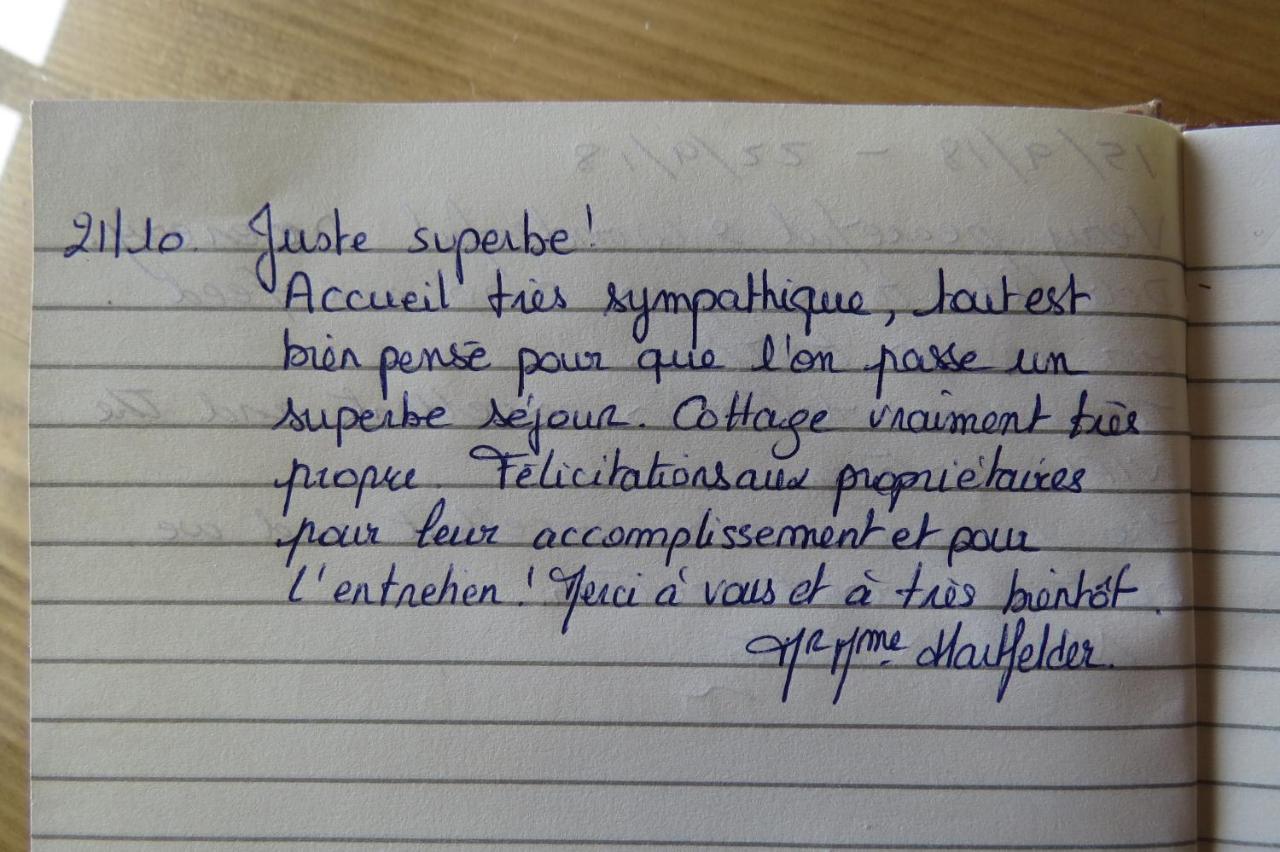 21/10. Juste superbe!
Accueil très sympathique, tout est
bien pensé pour que l'on passe un
superbe séjour. Cottage vraiment très
propre. Félicitations aux propriétaires
pour leur accomplissement et pour
l'entretien! Merci à vous et à très bientôt.
Mr Mme
15/9/18 - 22/9/18